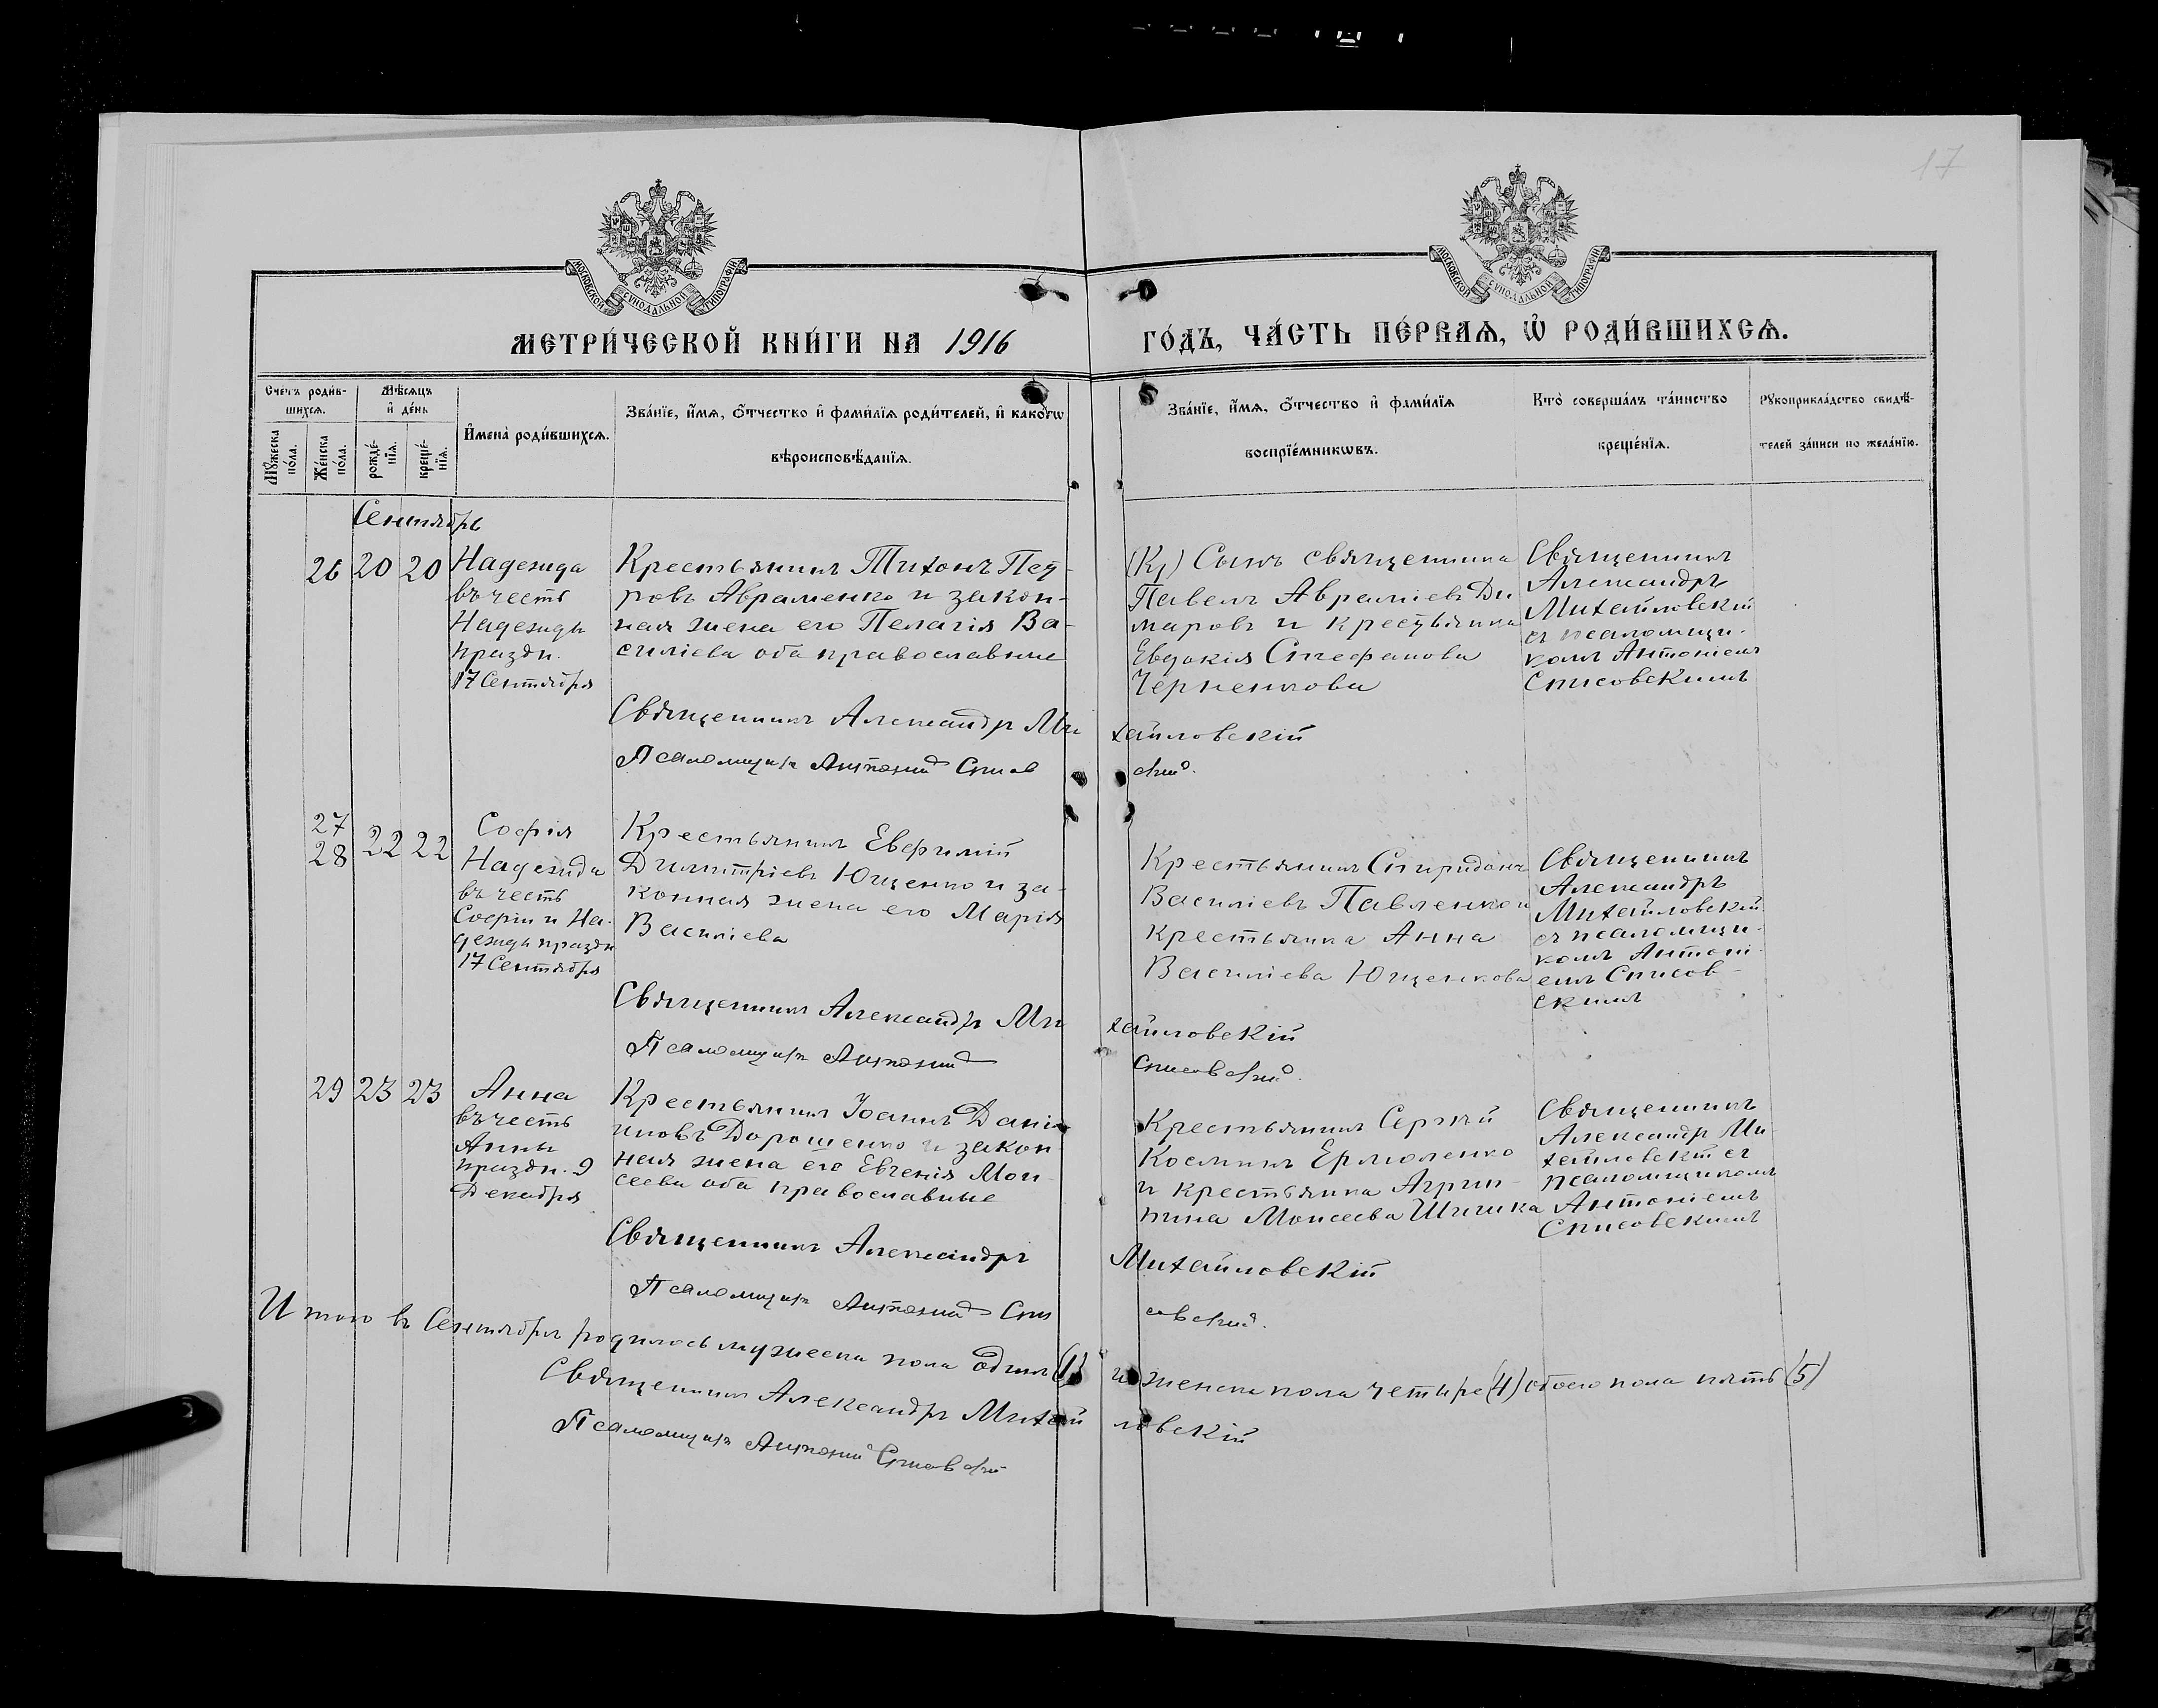 17
МОСКОВСКОЙ СѴНОДАЛЬНОЙ ТИПОГРАФІИ
МОСКОВСКОЙ СѴНОДАЛЬНОЙ ТИПОГРАФІИ
МЕТРИ́ЧЕСКОЙ КНИ́ГИ НА 1916
ГО́ДЪ, ЧА́СТЬ ПЕ́РВАѦ, Ѡ҆ РОДИ́ВШИХСѦ.
Счетъ роди́в-
шихсѧ.
Мꙋжеска
по́ла.
Же́нска
по́ла.
Мѣ́сѧцъ
и҆ де́нь
рожде́-
нїѧ.
креще́-
нїѧ.
И҆мена̀ роди́вшихсѧ.
Зва́нїе, и҆́мѧ, ѻ҆́тчество и҆ фами́лїѧ роди́телей, и҆ како́гѡ
вѣроисповѣ́данїѧ.
Зва́нїе, и҆́мѧ, ѻ҆́тчество и҆ фами́лїѧ
воспрїе́мникѡвъ.
Кто̀ соверша́лъ та́инство
креще́нїѧ.
Рꙋкоприкла́дство свидѣ́-
телей за́писи по жела́нїю.
Сентябрь
26 20 20
Надежда
въ честь
Надежды
праздн.
17 Сентября
Крестьянинъ Тихонъ Пет-
ровъ Авраменко и закон-
ная жена его Пелагія Ва-
силіева оба православные
Сынъ священника
Павелъ Авраміевъ Ди
маровъ и крестьянка
Евдокія Стефанова
Черненкова
Священникъ
Александръ
Михайловскій
съ псаломщи-
комъ Антоніемъ
Списовскимъ
Священникъ Александръ Ми
хайловскій
Псаломщикъ Антоній Списов
скій.
27
28
22 22
Софія
Надежда
въ честь
Софіи и На-
дежды праздн
17 Сентября
Крестьянинъ Евфимій
Димитріевъ Ющенко и за-
конная жена его Марія
Василіева
Крестьянинъ Спиридонъ
Василіевъ Павленко и
крестьянка Анна
Василіева Ющенкова
Священникъ
Александръ
Михайловскій
съ псаломщи-
комъ Антоні-
емъ Списов-
скимъ
Священникъ Александръ Ми
хайловскій
Псаломщикъ Антоній
Списовскій.
29 23 23
Анна
въ честь
Анны
праздн. 9
Декабря
Крестьянинъ Іоаннъ Даніи
иловъ Дорошенко и закон
ная жена его Евгенія Мои
сеева оба православные
Крестьянинъ Сергѣй
Косминъ Ермоленко
и крестьянка Агрип-
пина Моисеева Шишка
Священникъ
Александръ Ми
хайловскій съ
псаломщикомъ
Антоніемъ
Списовскимъ
Священникъ Александръ
Михайловскій
Псаломщикъ Антоній Спи
совскій.
Итого въ Сентябрѣ родилось мужеска пола одинъ (1)
и женска пола четыре (4) обоего пола пять (5)
Священникъ Александръ Михай
ловскій
Псаломщикъ Антоній Списовскій